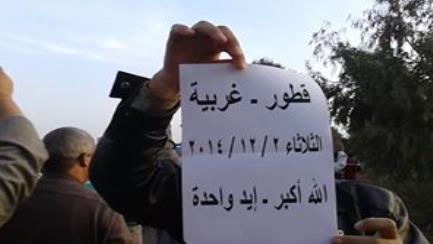 قطور - غربية
الثلاثاء ٢ / ١٢ / ٢٠١٤
الله أكبر - إيد واحدة